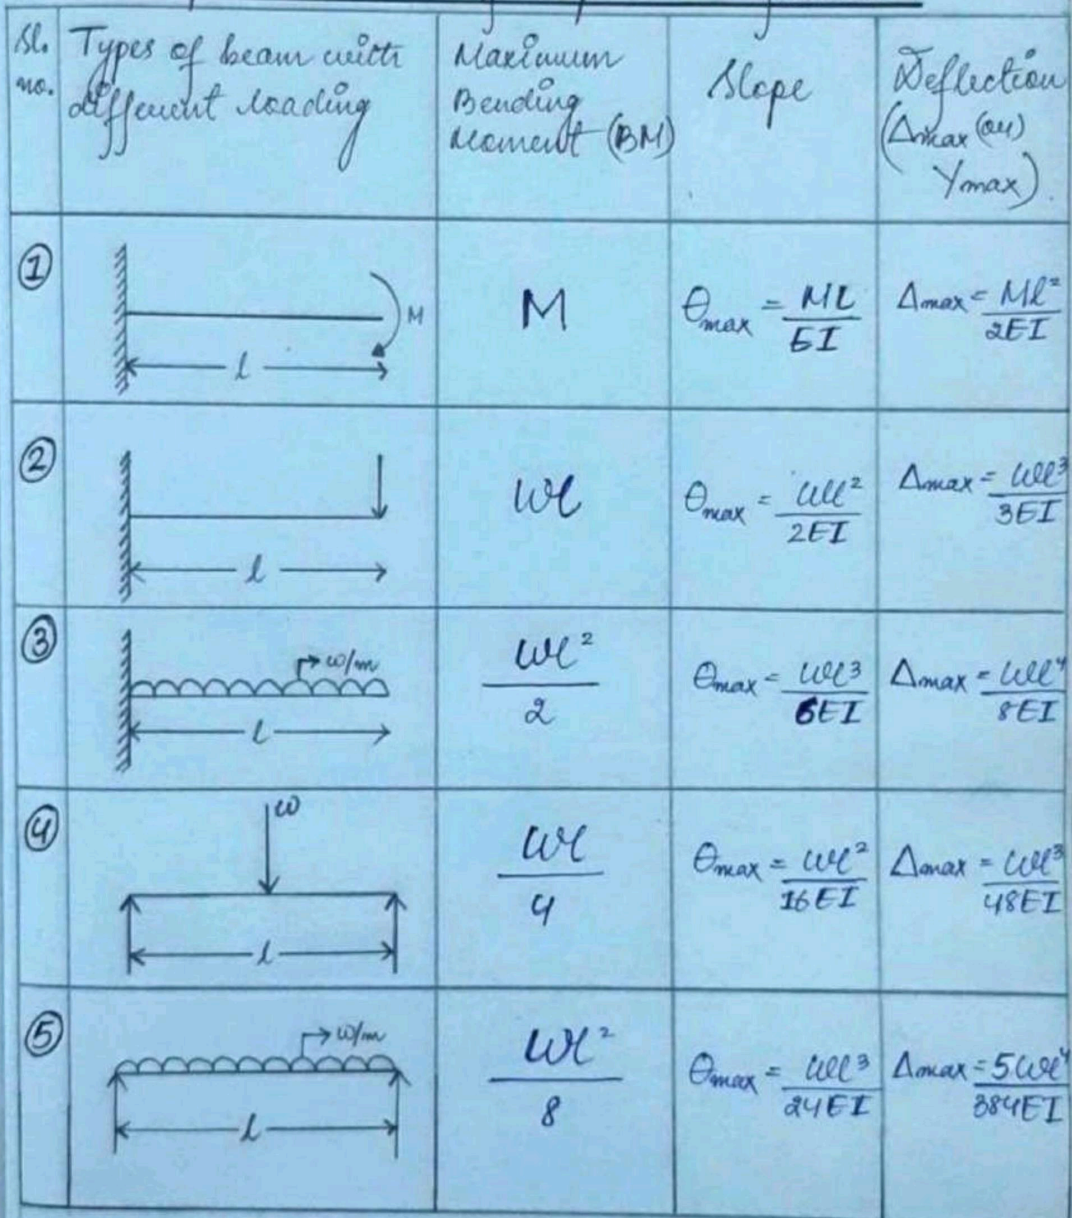 Sl.
no.
Types of beam with
different loading
Maximum
Bending
Moment (BM)
Slope
Deflection
(Δmax (or)
Ymax).
①
M
l
M
θmax = Ml/EI
Δmax = Ml²/2EI
②
l
Wl
θmax = Wl²/2EI
Δmax = Wl³/3EI
③
w/m
l
Wl²/2
θmax = Wl³/6EI
Δmax = Wl⁴/8EI
④
w
l
Wl/4
θmax = Wl²/16EI
Δmax = Wl³/48EI
⑤
w/m
l
Wl²/8
θmax = Wl³/24EI
Δmax = 5Wl⁴/384EI